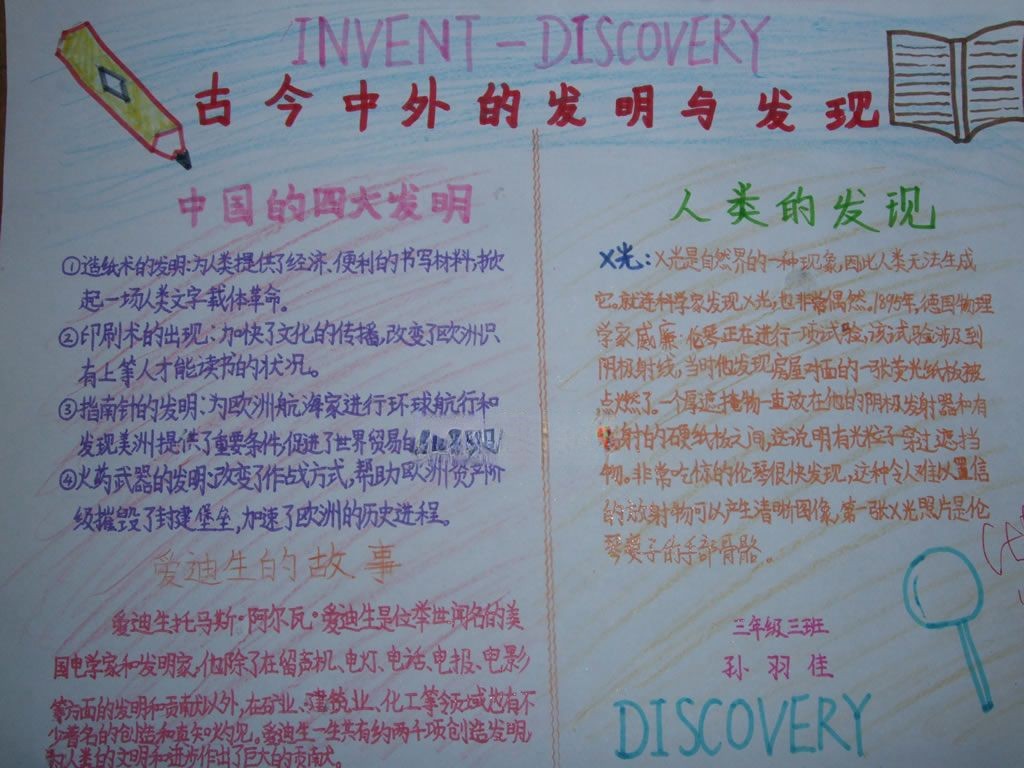 INVENT-DISCOVERY
古今中外的发明与发现
中国的四大发明
①造纸术的发明:为人类提供了经济、便利的书写材料,掀
起一场人类文字载体革命。
②印刷术的出现:加快了文化的传播,改变了欧洲只
有上等人才能读书的状况。
③指南针的发明:为欧洲航海家进行环球航行和
发现美洲提供了重要条件,促进了世界贸易的
④火药武器的发明:改变了作战方式,帮助欧洲资产阶
级摧毁了封建堡垒,加速了欧洲的历史进程。
爱迪生的故事
爱迪生托马斯·阿尔瓦·爱迪生是位举世闻名的美
国电学家和发明家,他除了在留声机、电灯、电话、电报、电影
等方面的发明和贡献以外,在矿业、建筑业、化工等领域也有不
少著名的创造和真知灼见。爱迪生一生共有约两千项创造发明,
为人类的文明和进步作出了巨大的贡献。
人类的发现
X光:X光是自然界的一种现象,因此人类无法生成
它。就连科学家发现X光,也非常偶然。1895年,德国物理
学家威廉·伦琴正在进行一项试验,该试验涉及到
阴极射线,当时他发现房屋对面的一张荧光纸板被
点燃了。一个厚遮掩物一直放在他的阴极发射器和有
射的硬纸板之间,这说明有光粒子穿过遮挡
物。非常吃惊的伦琴很快发现,这种令人难以置信
的放射物可以产生清晰图像,第一张X光照片是伦
琴妻子的手部骨骼。
三年级三班
孙羽佳
DISCOVERY